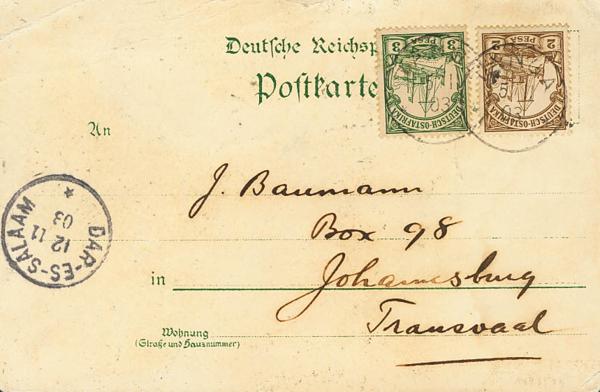 Deutsche Reichsp
Postkarte
3 PESA 3
DEUTSCH-OSTAFRIKA
2 PESA 2
DEUTSCH-OSTAFRIKA
An
J. Baumann
Box 98
in Johannesburg
Transvaal
Wohnung
(Straße und Hausnummer)
DAR-ES-SALAAM
12 11
03